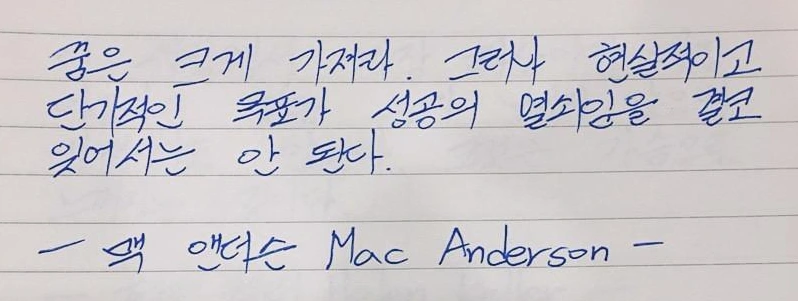 꿈은 크게 가져라. 그러나 현실적이고
단기적인 목표가 성공의 열쇠임을 결코
잊어서는 안 된다.
- 맥 앤더슨 Mac Anderson -